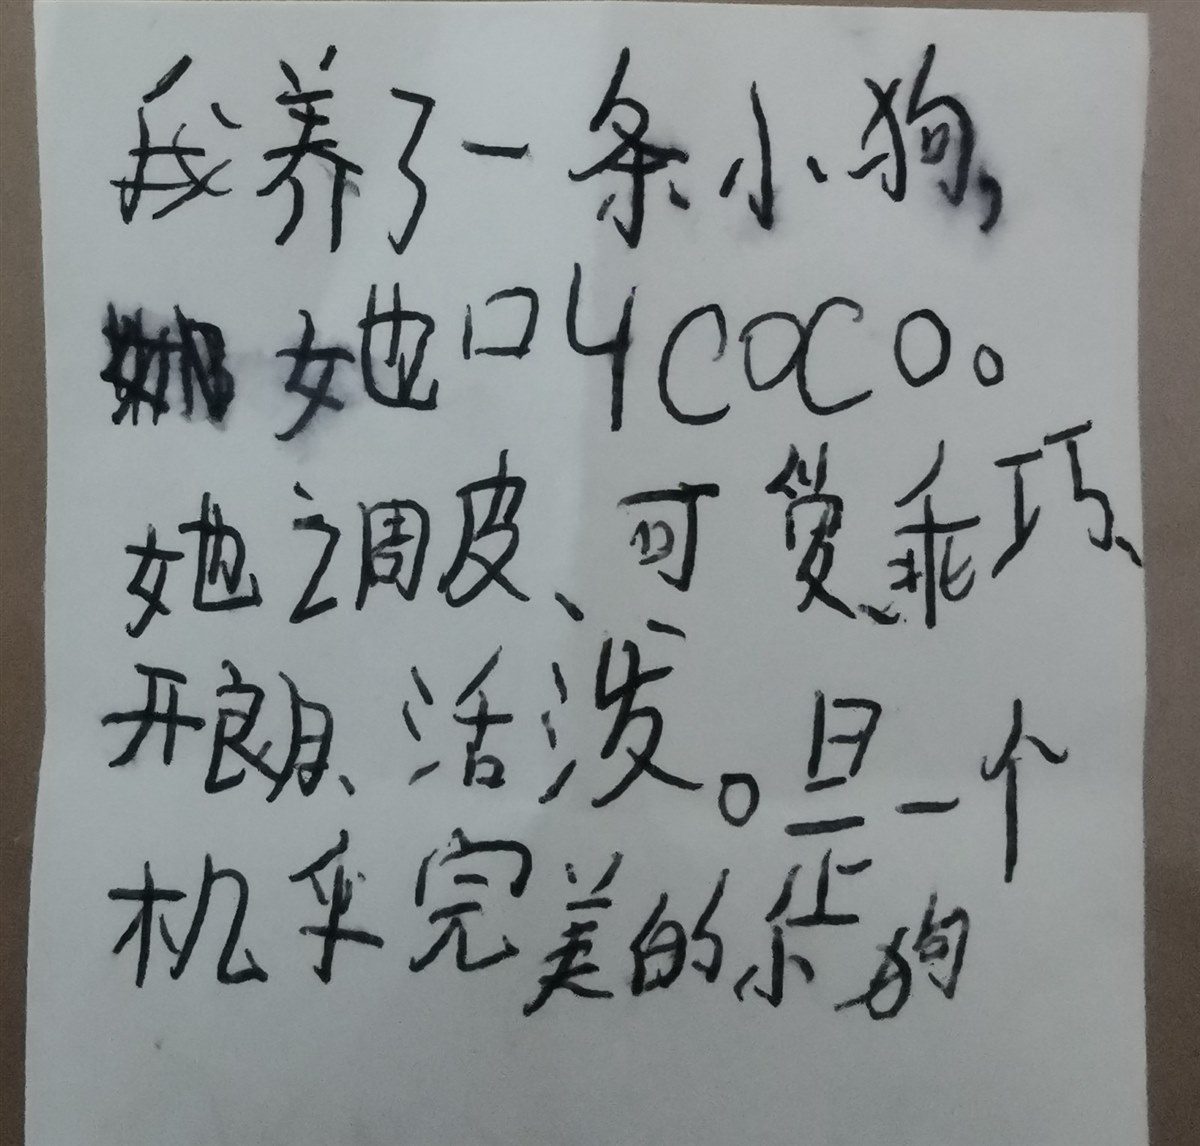 我养了一条小狗，
她叫COCO。
她调皮、可爱、乖巧、
开朗、活泼。是一个
机乎完美的小狗